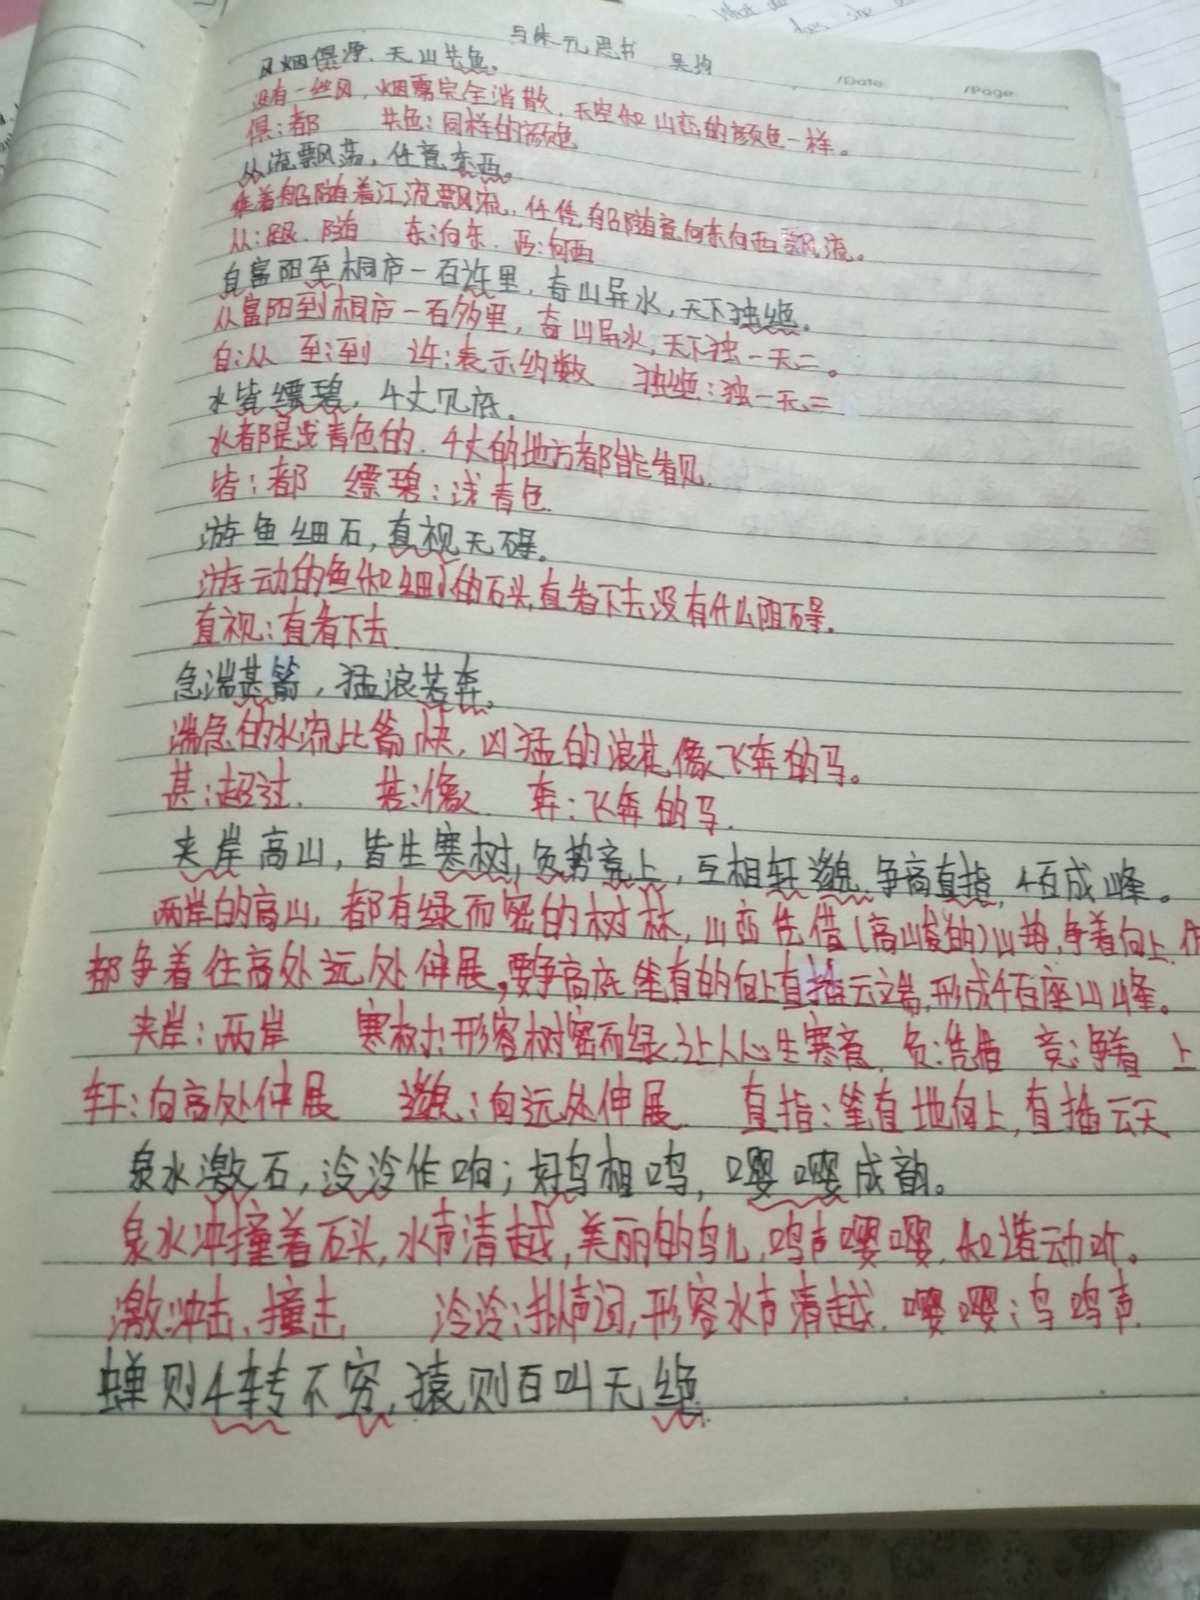 与朱元思书 吴均
/Date /Page
风烟俱净，天山共色。
没有一丝风，烟雾完全消散，天空和山峦的颜色一样。
俱：都 共色：同样的颜色
从流飘荡，任意东西。
乘着船随着江流飘流，任凭船随意向东向西飘流。
从：跟、随 东：向东、西：向西
自富阳至桐庐一百许里，奇山异水，天下独绝。
从富阳到桐庐一百多里，奇山异水，天下独一无二。
自：从 至：到 许：表示约数 独绝：独一无二
水皆缥碧，千丈见底。
水都是浅青色的，千丈的地方都能看见。
皆：都 缥碧：浅青色
游鱼细石，直视无碍。
游动的鱼和细小的石头，直看下去没有什么阻碍。
直视：直看下去
急湍甚箭，猛浪若奔。
湍急的水流比箭快，凶猛的浪花像飞奔的马。
甚：超过 若：像 奔：飞奔的马
夹岸高山，皆生寒树，负势竞上，互相轩邈，争高直指，千百成峰。
两岸的高山，都有绿而密的树林，山峦凭借(高峻的)山势，争着向上，
都争着往高处远处伸展，要争高底，笔直的向上直插云端，形成千百座山峰。
夹岸：两岸 寒树：形容树密而绿让人心生寒意 负：凭借 竞：争着 上
轩：向高处伸展 邈：向远处伸展 直指：笔直地向上，直插云天
泉水激石，泠泠作响；好鸟相鸣，嘤嘤成韵。
泉水冲撞着石头，水声清越，美丽的鸟儿，鸣声嘤嘤，和谐动听。
激：冲击、撞击 泠泠：拟声词，形容水声清越 嘤嘤：鸟鸣声
蝉则千转不穷，猿则百叫无绝